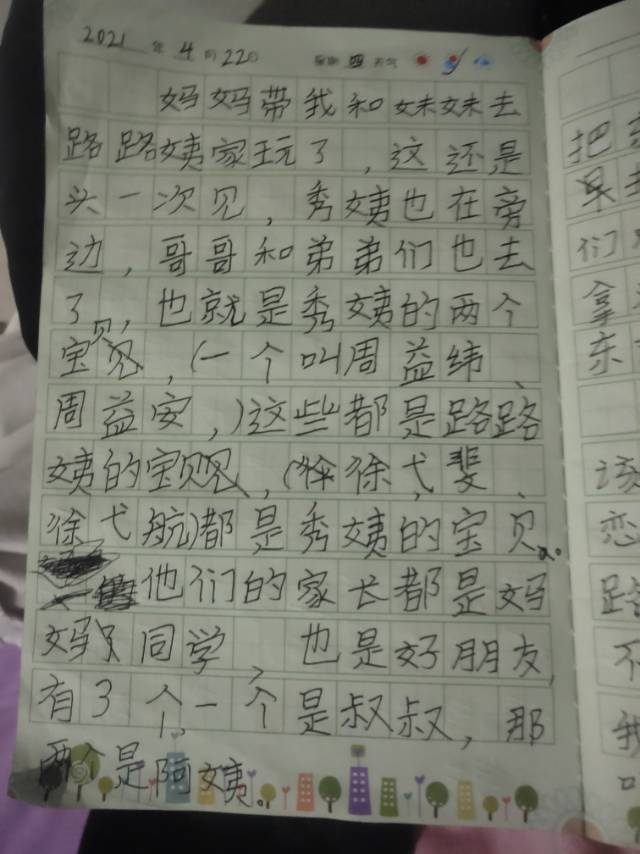 2021年4月22日 星期四 天气
妈妈带我和妹妹去
路路姨家玩了,这还是
头一次见,秀姨也在旁
边,哥哥和弟弟们也去
了,也就是秀姨的两个
宝贝,(一个叫周益纬、
周益安,)这些都是路路
姨的宝贝,(徐弋斐、
徐弋航)都是秀姨的宝贝。
他们的家长都是妈
妈同学,也是好朋友
有3个,一个是叔叔,那
两个是阿姨。
把
早
们
拿
东
该
恋
路
不
我